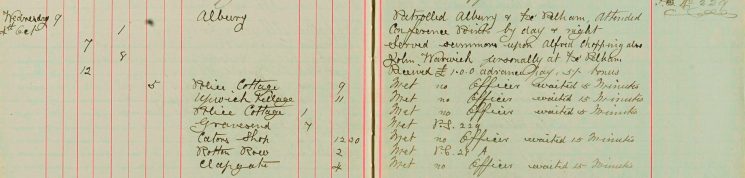 Wednesday 9 Albury Patrolled Albury & Fx Pelham, Attended
2nd Oct 1 Conference Points by day & night
7 Served summons upon Alfred Chopping also
8 John Warwick personally at Fx Pelham
12 Received £1-0-0 advance Pay, 5/- bonus
5 Police Cottage 9 Met no Officer waited 15 Minutes
Upwick Village 11 Met no Officer waited 15 Minutes
Police Cottage 1 Met no Officer waited 15 Minutes
Gravesend 7 Met P.S. 229
Eatons Shop 12 30 Met no Officer waited 15 Minutes
Rotton Row 2 Met P.C. 21 A
Clapgate 4 Met no Officer waited 15 Minutes